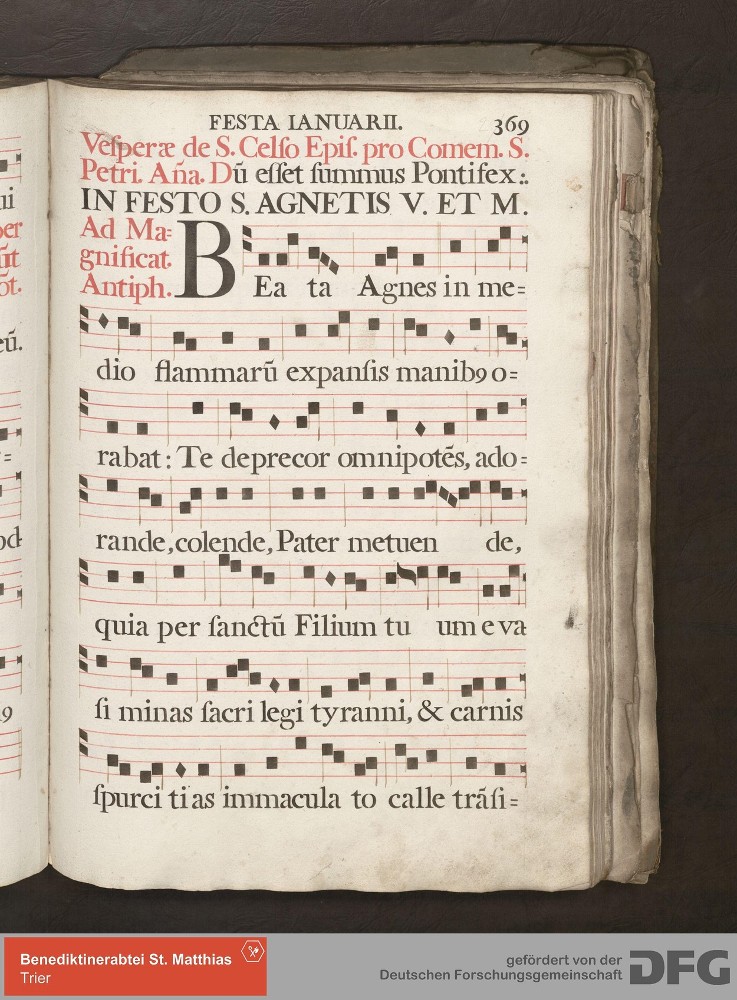 FESTA IANUARII. 369
Veſperæ de S. Celſo Epiſ. pro Comem. S.
Petri. Aña. Dū eſſet ſummus Pontifex :.
IN FESTO S. AGNETIS V. ET M.
Ad Ma=
gnificat.
Antiph.
BEa ta Agnes in me=
dio flammarū expanſis manib9 o=
rabat : Te deprecor omnipotēs, ado=
rande, colende, Pater metuen de,
quia per ſanctū Filium tu um e va
ſi minas ſacri legi tyranni, & carnis
ſpurci ti as immacula to calle trāſi=
ui
eū.
Benediktinerabtei St. Matthias
Trier
gefördert von der
Deutschen Forschungsgemeinschaft
DFG